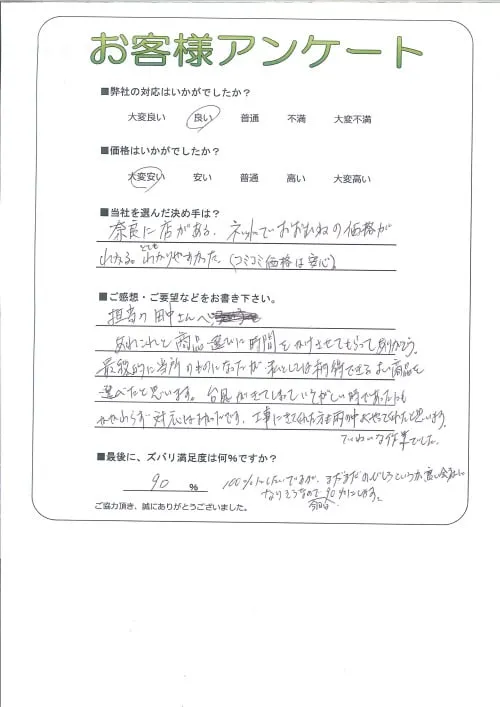 お客様アンケート
■弊社の対応はいかがでしたか？
大変良い 良い 普通 不満 大変不満
■価格はいかがでしたか？
大変安い 安い 普通 高い 大変高い
■当社を選んだ決め手は？
奈良に店がある、ネットでおおむねの価格が
わかる。とてもわかりやすかった（コミコミ価格は安心）
■ご感想・ご要望などをお書き下さい。
担当の田中さんへ
あれこれと商品選びに時間をかけさせてもらってありがとう。
最終的に当所のものになったが私としては納得できるよい商品を
選べたと思います。台風がきてしまいいそがしい時であったにも
かかわらず対応は です。工事にきてくれた方も雨の中よくやってくれたと思います。
ていねいな作業でした。
■最後に、ズバリ満足度は何％ですか？
90 ％ 100％にしたいですが、まだまだのびしろというか高い会社に
なりそうなので90％にします。
今回は
ご協力頂き、誠にありがとうございました。